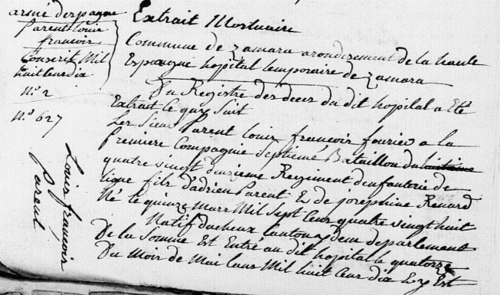 armé despagne
Parent louis
francois
Conscrit Mil
huit cens dix
N.º 2
N.º 627
Louis françois
Parent
Extrait Mortuaire
Commune de zamara arondisement de la haute
Espagne hopital temporaire de zamara
Du Registre des deces du dit hopital a Eté
Extrait ce qui Suit
Le Sieur Parent louis francois fourier a la
premiere Compagnie Septieme Bataillon du
quatre vingt Regiment denfanterie de
ligne fils dadrien Parent Et de josephine Renard
Né le quinze Mars Mil Sept cens quatre vingt huit
Natif dacheux Canton departement
De la Somme Est Entré au dit hopital le quatorze
Du Mois de Mai lans Mil huit Cens dix Et y Est